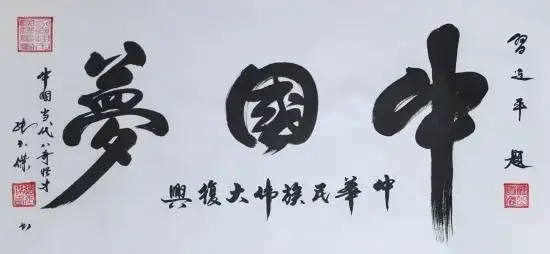 習近平 題
中國夢
中華民族偉大復興
中國當代八奇怪才